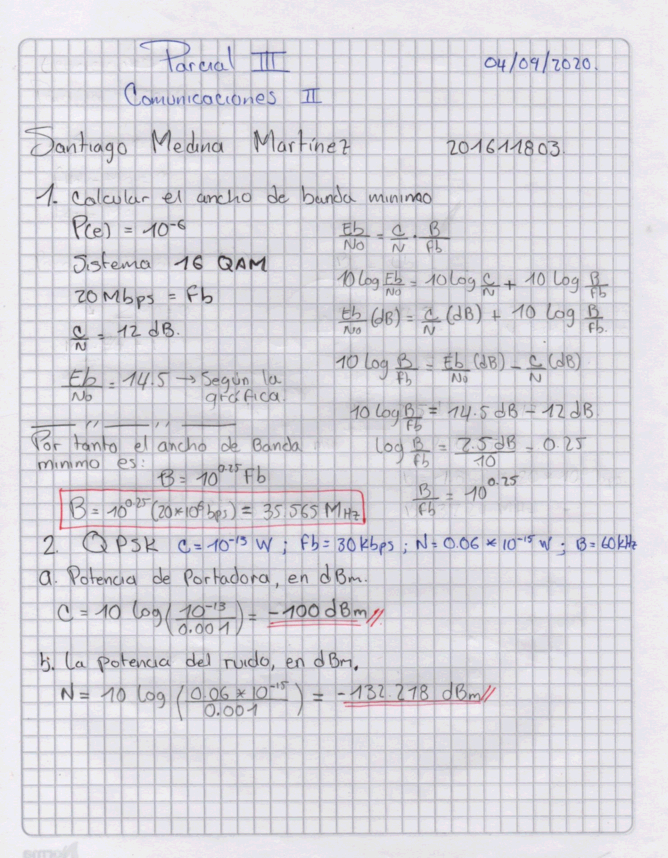 Parcial III
04/09/2020.
Comunicaciones II
Santiago Medina Martínez 201611803.
1. Calcular el ancho de banda minimo
P(e) = 10^-6
Sistema 16 QAM
20 Mbps = Fb
C/N = 12 dB.
Eb/No = 14.5 → Según la
gráfica.
Eb/No = C/N · B/Fb
10 log Eb/No = 10 log C/N + 10 log B/Fb
Eb/No (dB) = C/N (dB) + 10 log B/Fb.
10 log B/Fb = Eb/No (dB) - C/N (dB)
10 log B/Fb = 14.5 dB - 12 dB
log B/Fb = 2.5 dB/10 = 0.25
B/Fb = 10^0.25
Por tanto el ancho de Banda
minimo es:
B = 10^0.25 Fb
B = 10^0.25 (20*10^6 bps) = 35.565 MHz
2. QPSK C = 10^-13 W ; Fb = 30 kbps ; N = 0.06 * 10^-15 W ; B = 60 kHz
a. Potencia de Portadora, en dBm.
C = 10 log (10^-13/0.001) = -100 dBm //
b. La potencia del ruido, en dBm.
N = 10 log (0.06 * 10^-15/0.001) = -132.218 dBm //